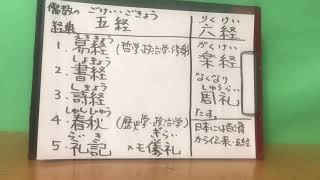 儒教の
経典
ごけい、ごきょう
五経
りくけい
六経
えききょう
1. 易経 (哲学・政治学・修身)
しょきょう
2. 書経
しきょう
3. 詩経
しゅんじゅう
4. 春秋 (歴史学・政治学)
らいき
5. 礼記
ぎらい
×モ儀礼
がくけい
楽経
なくなり
しゅうらい
周礼
たす。
日本には
から伝来